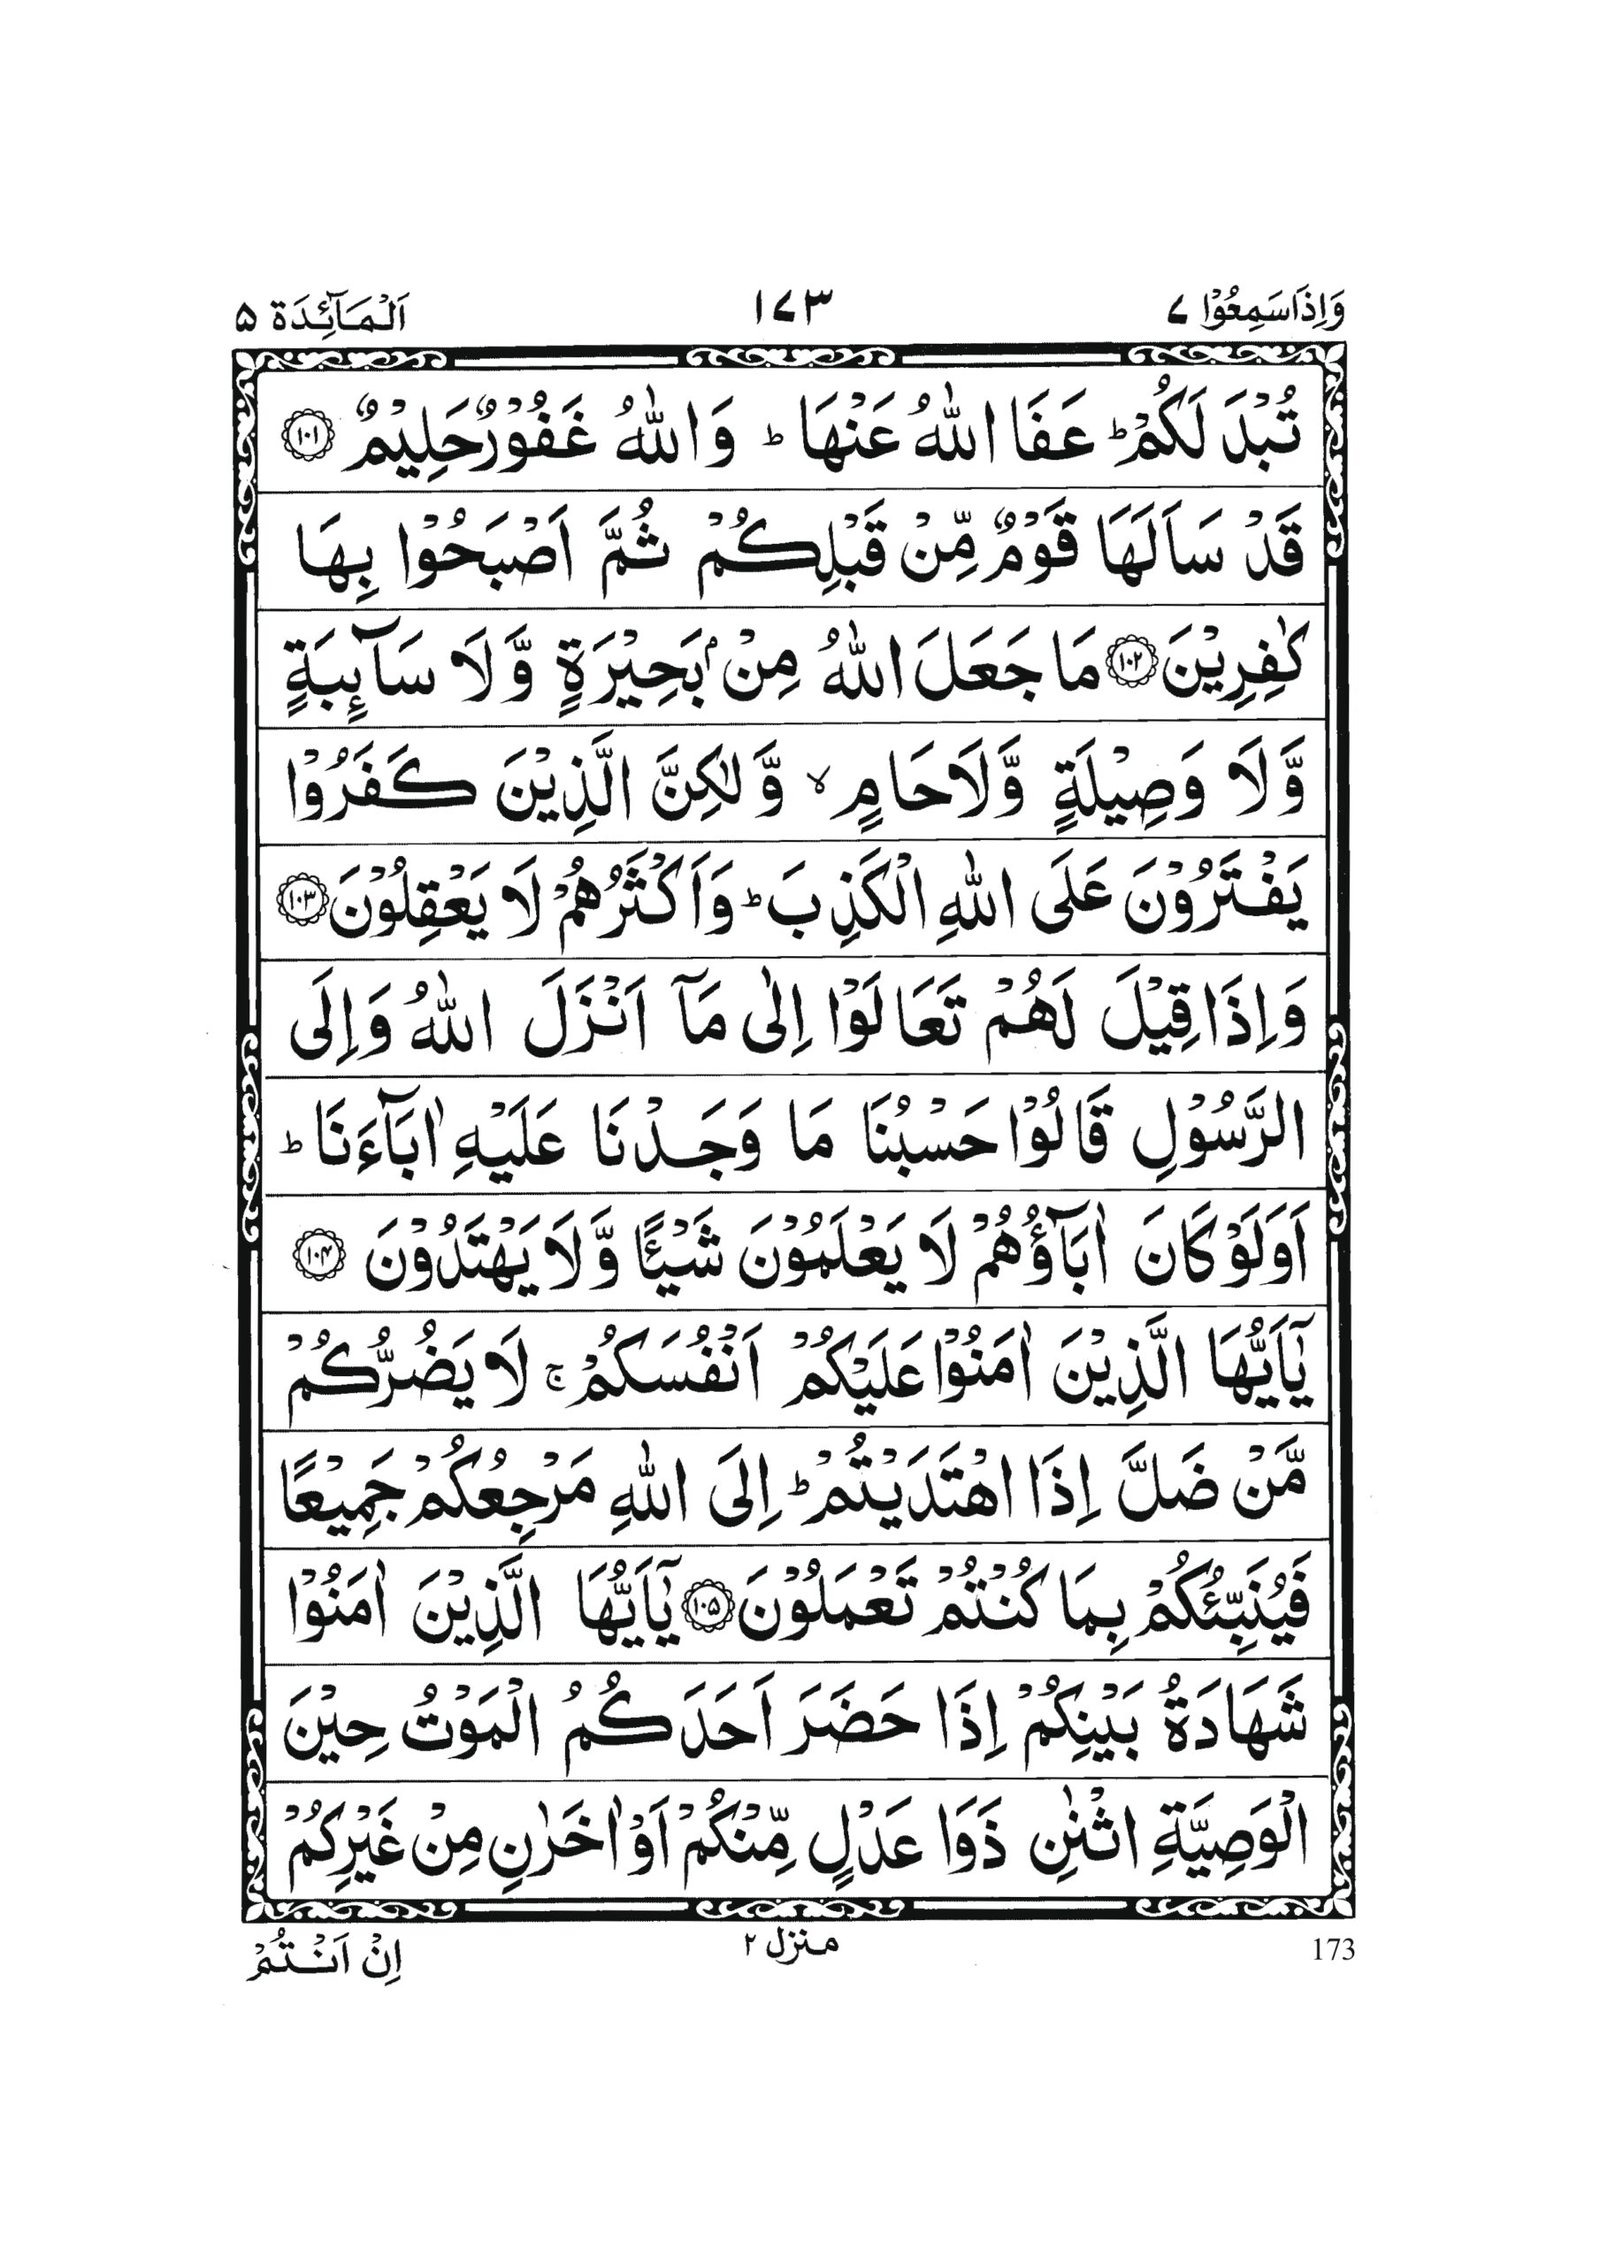 وَاِذَا سَمِعُوْا ٧
١٧٣
اَلْمَآئِدَة ۵
تُبْدَ لَكُمْ ؕ عَفَا اللّٰهُ عَنْهَا ؕ وَاللّٰهُ غَفُوْرٌ حَلِيْمٌ ﴿۱۰۱﴾
قَدْ سَاَلَهَا قَوْمٌ مِّنْ قَبْلِكُمْ ثُمَّ اَصْبَحُوْا بِهَا
كٰفِرِيْنَ ﴿۱۰۲﴾ مَا جَعَلَ اللّٰهُ مِنْۢ بَحِيْرَةٍ وَّلَا سَآئِبَةٍ
وَّلَا وَصِيْلَةٍ وَّلَا حَامٍ ۙ وَّلٰكِنَّ الَّذِيْنَ كَفَرُوْا
يَفْتَرُوْنَ عَلَى اللّٰهِ الْكَذِبَ ؕ وَاَكْثَرُهُمْ لَا يَعْقِلُوْنَ ﴿۱۰۳﴾
وَاِذَا قِيْلَ لَهُمْ تَعَالَوْا اِلٰى مَآ اَنْزَلَ اللّٰهُ وَاِلَى
الرَّسُوْلِ قَالُوْا حَسْبُنَا مَا وَجَدْنَا عَلَيْهِ اٰبَآءَنَا ؕ
اَوَلَوْ كَانَ اٰبَآؤُهُمْ لَا يَعْلَمُوْنَ شَيْـًٔا وَّلَا يَهْتَدُوْنَ ﴿۱۰۴﴾
يٰٓاَيُّهَا الَّذِيْنَ اٰمَنُوْا عَلَيْكُمْ اَنْفُسَكُمْ ۚ لَا يَضُرُّكُمْ
مَّنْ ضَلَّ اِذَا اهْتَدَيْتُمْ ؕ اِلَى اللّٰهِ مَرْجِعُكُمْ جَمِيْعًا
فَيُنَبِّئُكُمْ بِمَا كُنْتُمْ تَعْمَلُوْنَ ﴿۱۰۵﴾ يٰٓاَيُّهَا الَّذِيْنَ اٰمَنُوْا
شَهَادَةُ بَيْنِكُمْ اِذَا حَضَرَ اَحَدَكُمُ الْمَوْتُ حِيْنَ
الْوَصِيَّةِ اثْنٰنِ ذَوَا عَدْلٍ مِّنْكُمْ اَوْ اٰخَرٰنِ مِنْ غَيْرِكُمْ
173
منزل ٢
اِنْ اَنْتُمْ